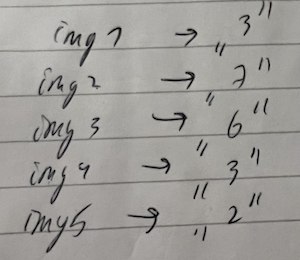 img 1 → "3"
img 2 → "7"
img 3 → "6"
img 4 → "3"
img 5 → "2"